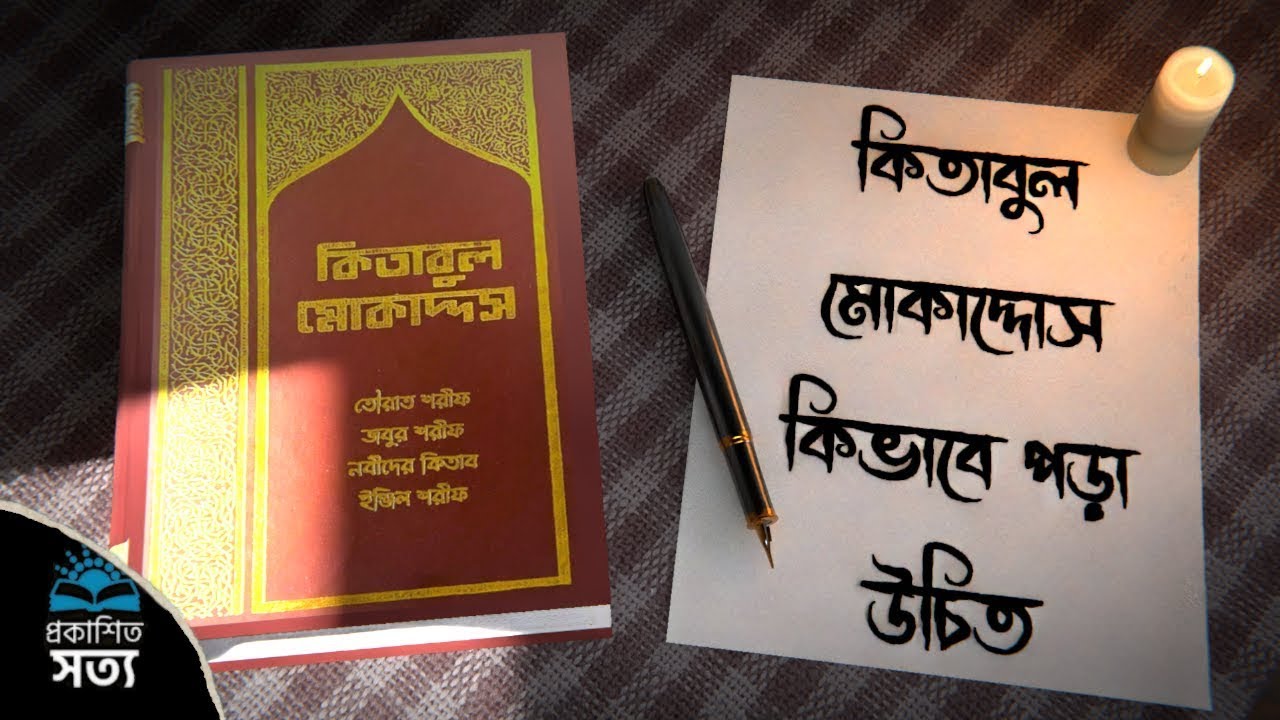 কিতাবুল
মোকাদ্দস
তৌরাত শরীফ
জবুর শরীফ
নবীদের কিতাব
ইঞ্জিল শরীফ
কিতাবুল
মোকাদ্দোস
কিভাবে পড়া
উচিত
প্রকাশিত
সত্য